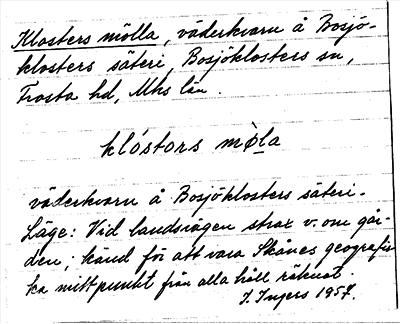 Klosters mölla, väderkvarn å Bosjö-
klosters säteri, Bosjöklosters sn,
Frosta hd, Mhs län.
klóstors mø̀la
väderkvarn å Bosjöklosters säteri.
Läge: Vid landsvägen strax v. om går-
den; känd för att vara Skånes geografis
ka mittpunkt från alla håll räknat.
I. Ingers 1957.